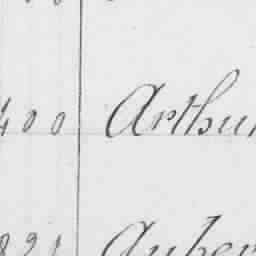 400 Arthur
821 Auber